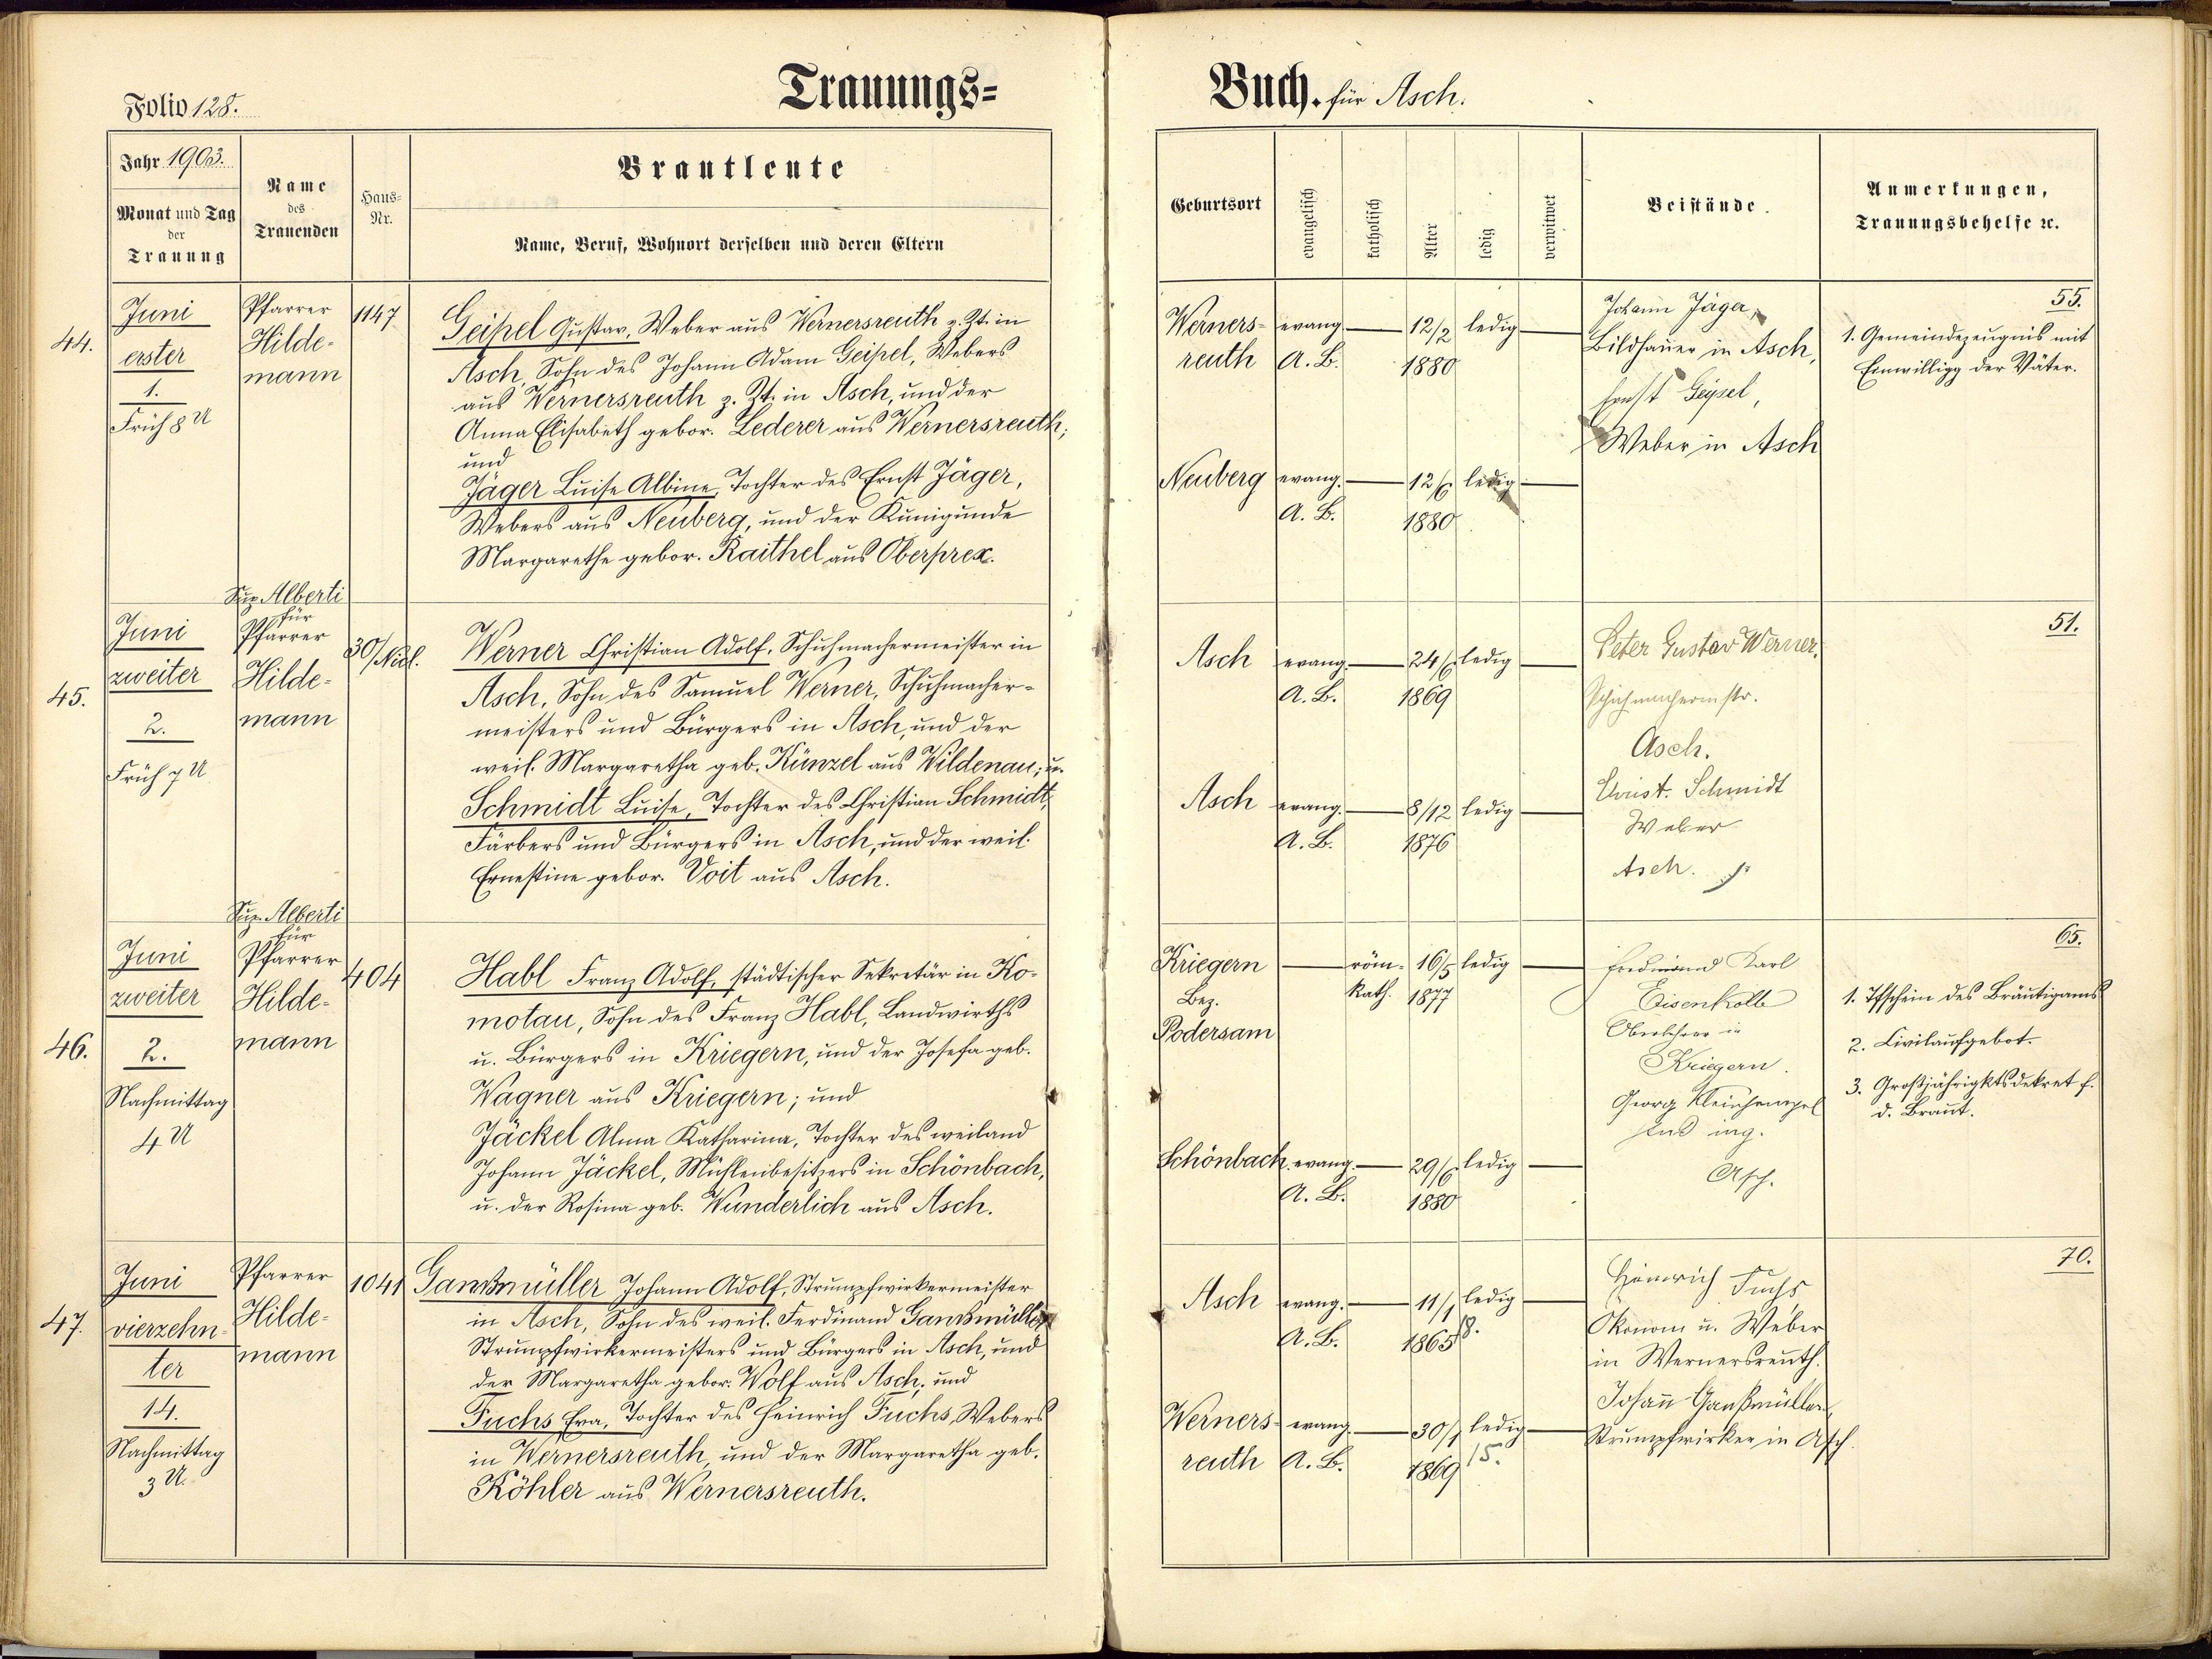 Folio 128.
Trauungs=
Buch. für Asch.
Jahr 1903.
Monat und Tag
der
Trauung
Name
des
Trauenden
Haus=
Nr.
Brautleute
Name, Beruf, Wohnort derselben und deren Eltern
Geburtsort
evangelisch
katholisch
Alter
ledig
verwitwet
Beistände.
Anmerkungen,
Trauungsbehelfe ⁊c.
44.
Juni
erster
1.
Früh 8 U
Pfarrer
Hilde-
mann
1147
Geipel Gustav, Weber aus Wernersreuth z. Zt. in
Asch, Sohn des Johann Adam Geipel, Webers
aus Wernersreuth z. Zt. in Asch, und der
Anna Elisabeth gebor. Lederer aus Wernersreuth;
und
Jäger Luise Albine, Tochter des Ernst Jäger,
Webers aus Neuberg, und der Kunigunde
Margarethe gebor. Raithel aus Oberprex.
Werners-
reuth
evang.
A. B.
12/2
1880
ledig
Neuberg
evang.
A. B.
12/6
1880
ledig
Johann Jäger,
Bildhauer in Asch,
Ernst Geipel,
Weber in Asch
55.
1. Gemeindezeugnis mit
Einwilligg der Väter.
45.
Juni
zweiter
2.
Früh 7 U
Sup. Alberti
für
Pfarrer
Hilde-
mann
30/Nicl.
Werner Christian Adolf, Schuhmachermeister in
Asch, Sohn des Samuel Werner, Schuhmacher-
meisters und Bürgers in Asch, und der
weil. Margaretha geb. Künzel aus Wildenau; u.
Schmidt Luise, Tochter des Christian Schmidt,
Färbers und Bürgers in Asch, und der weil.
Ernestine gebor. Voit aus Asch.
Asch
evang.
A. B.
24/6
1869
ledig
Asch
evang.
A. B.
8/12
1876
ledig
Peter Gustav Werner.
Schuhmachermstr.
Asch.
Christ. Schmidt
Weber
Asch.
51.
46.
Juni
zweiter
2.
Nachmittag
4 U
Sup. Alberti
für
Pfarrer
Hilde-
mann
404
Habl Franz Adolf, städtischer Sekretär in Ko-
motau, Sohn des Franz Habl, Landwirths
u. Bürgers in Kriegern, und der Josefa geb.
Wagner aus Kriegern; und
Jäckel Alma Katharina, Tochter des weiland
Johann Jäckel, Mühlenbesitzers in Schönbach,
u. der Rosina geb. Wunderlich aus Asch.
Kriegern
Bez.
Podersam
röm.
kath.
16/5
1877
ledig
Schönbach
evang.
A. B.
29/6
1880
ledig
Karl
Eisenkolb
Oberlehrer in
Kriegern.
Georg
ing.
Asch.
65.
1. Tfschein des Bräutigams
2. Civilaufgebot.
3. Großjährigktsdekret f.
d. Braut.
47.
Juni
vierzehn-
ter
14.
Nachmittag
3 U.
Pfarrer
Hilde-
mann
1041
Ganßmüller Johann Adolf, Strumpfwirkermeister
in Asch, Sohn des weil. Ferdinand Ganßmüller,
Strumpfwirkermeisters und Bürgers in Asch, und
der Margaretha gebor. Wolf aus Asch; und
Fuchs Eva, Tochter des Heinrich Fuchs, Webers
in Wernersreuth, und der Margaretha geb.
Köhler aus Wernersreuth.
Asch
evang.
A. B.
11/1
1865
ledig
18.
Werners-
reuth
evang.
A. B.
30/1
1869
ledig
15.
Heinrich Fuchs
Ökonom u. Weber
in Wernersreuth.
Johann Ganßmüller,
Strumpfwirker in Asch.
70.